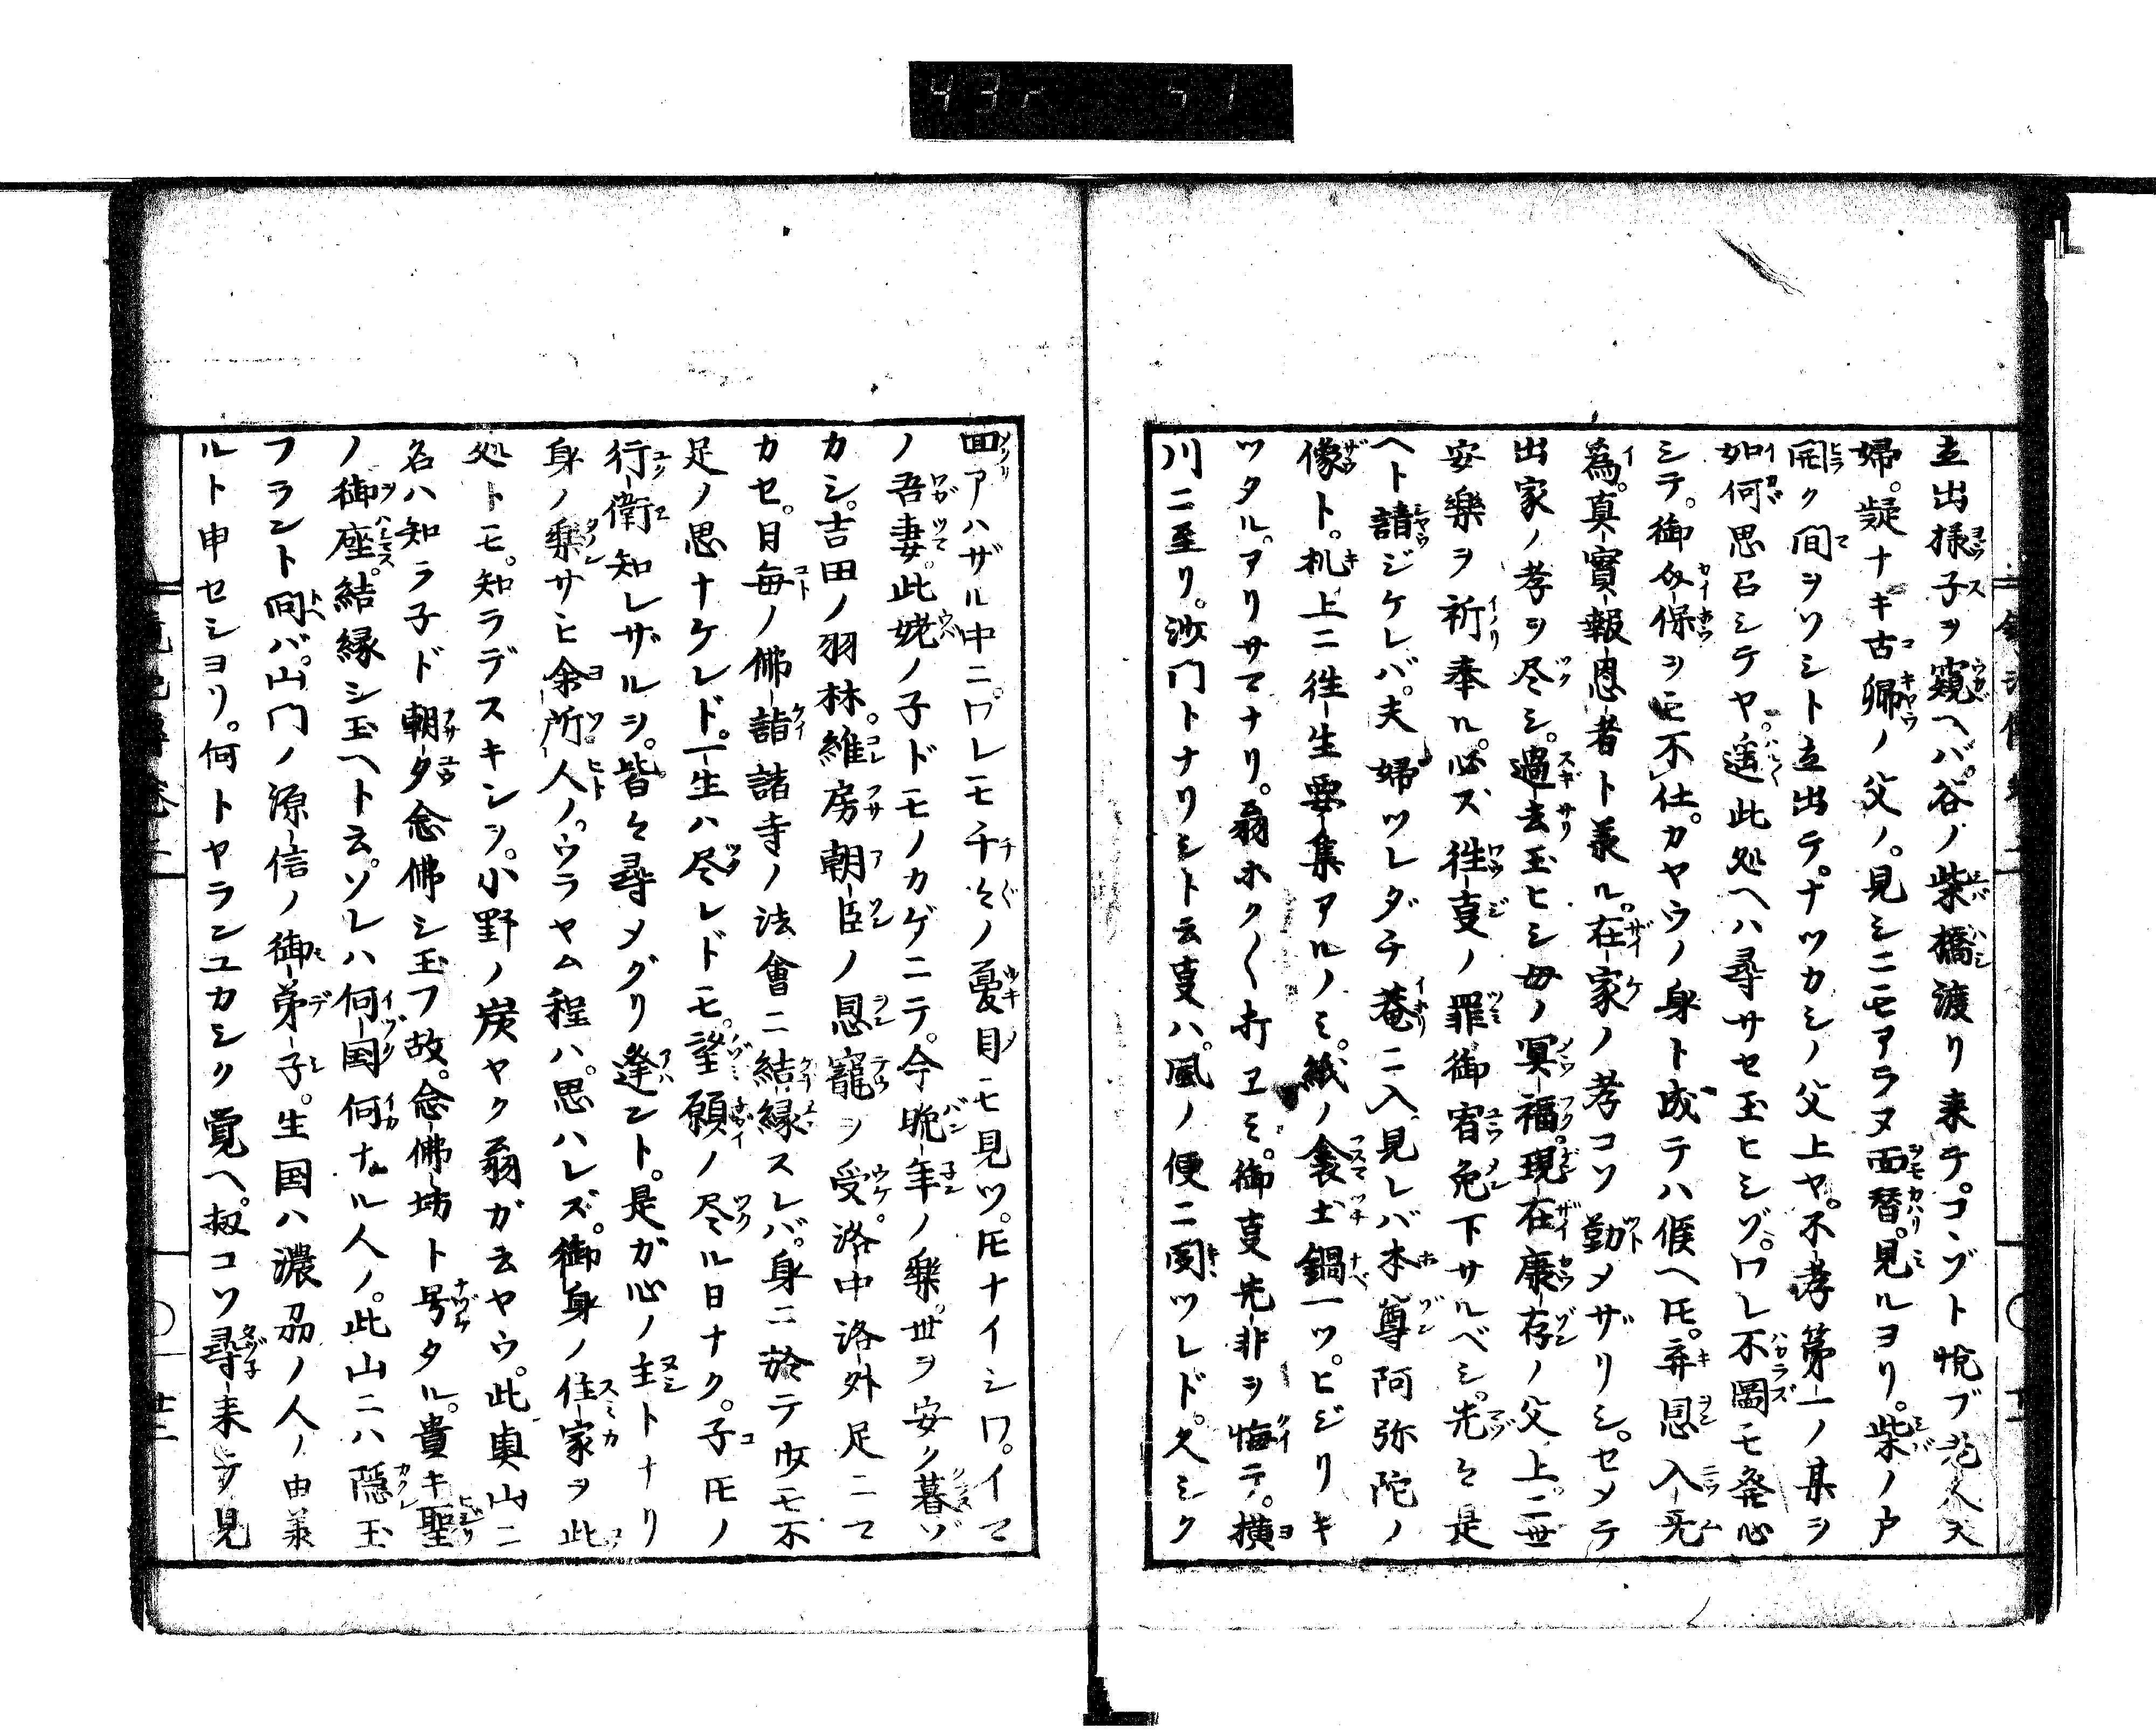 立出様子ヲ窺ヘバ。谷ノ柴橋渡リ来テ。コヽゾト悦ブ老人夫
婦。疑ナキ古郷ノ父ノ。見シニモアラヌ面替。見ルヨリ。柴ノ戸
開ク間ヲソシト立出テ。ナツカシノ父上ヤ。不孝第一ノ某ヲ
如何思召シテヤ。遥此処ヘハ尋サセ玉ヒシゾ。ワレ不圖モ発心
シテ。御介保ヲモ不仕。カヤウノ身ト成テハ候ヘ𪜈。弃恩入无
為。真實報恩者ト羕ル。在家ノ孝コソ勤メザリシ。セメテ
出家ノ孝ヲ尽シ。過去玉ヒシ母ノ冥福。現在康存ノ父上。二世
安樂ヲ祈奉ル。必ズ徃㕝ノ罪御宥免下サルベシ。先々是
ヘト請ジケレバ。夫婦ツレダチ菴ニ入見レバ本尊阿弥陀ノ
像ト。机上ニ徃生要集アルノミ。紙ノ衾土鍋一ツ。ヒジリキ
ツタル。アリサマナリ。翁ホク〳〵打ヱミ。御㕝先非ヲ悔テ。横
川ニ至リ。沙門トナリシト云㕝ハ。風ノ便ニ聞ツレド。久ミク
回アハザル中ニ。ワレモ千々ノ憂目モ見ツ。𪜈ナイシワ。イマ
ノ吾妻。此姥ノ子ドモノカゲニテ。今晩年ノ樂。世ヲ安ク暮ゾ
カシ。吉田ノ羽林。維房朝臣ノ恩寵ヲ受。洛中洛外足ニマ
カセ。日毎ノ佛詣諸寺ノ法會ニ結縁スレバ。身ニ於テ㳄モ不
足ノ思ナケレド。一生ハ尽レドモ。望願ノ尽ル日ナク。子𪜈ノ
行衛知レザルヲ。皆々尋メグリ逢ント。是ガ心ノ主トナリ
身ノ樂サヒ余所人ノ。ウラヤム程ハ。思ハレズ。御身ノ住家ヲ此
処トモ。知ラデスキシヲ。小野ノ炭ヤク翁ガ云ヤウ。此奥山ニ
名ハ知ラ子ド朝夕念佛シ玉フ故。念佛坊ト号タル。貴キ聖
ノ御座。結縁シ玉ヘト云。ソレハ何国何ナル人ノ。此山ニハ隠玉
フラント問バ。山門ノ源信ノ御弟子。生国ハ濃刕ノ人ノ由羕
ルト申セシヨリ。何トヤランユカシク覚ヘ。扨コソ尋来テ見